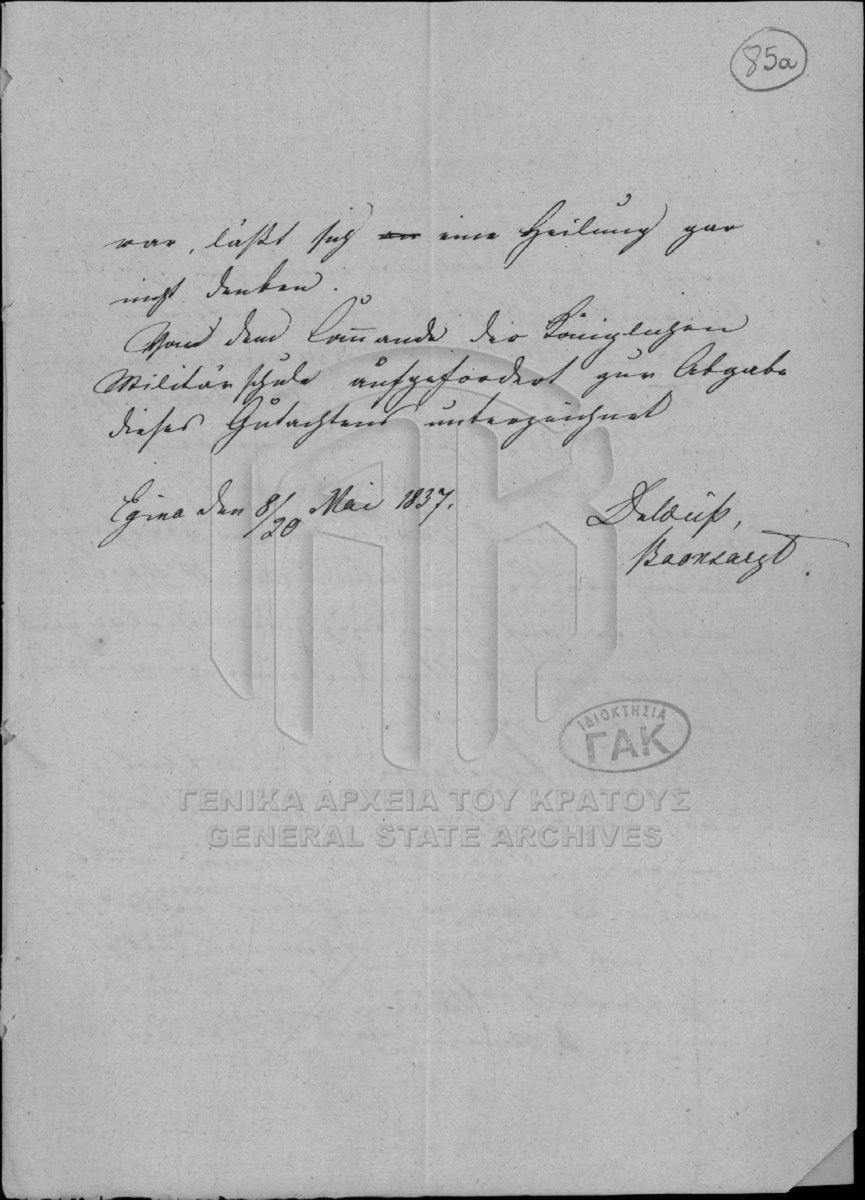 85a
war, läßt sich eine Heilung gar
nicht denken.
Von dem Com̅ando der Königlichen
Militärschule aufgefordert zur Abgabe
dieses Gutachtens unterzeichnet
Egina den 8/20 Mai 1837.
Baonsarzt.
ΙΔΙΟΚΤΗΣΙΑ
ΓΑΚ
ΓΕΝΙΚΑ ΑΡΧΕΙΑ ΤΟΥ ΚΡΑΤΟΥΣ
GENERAL STATE ARCHIVES